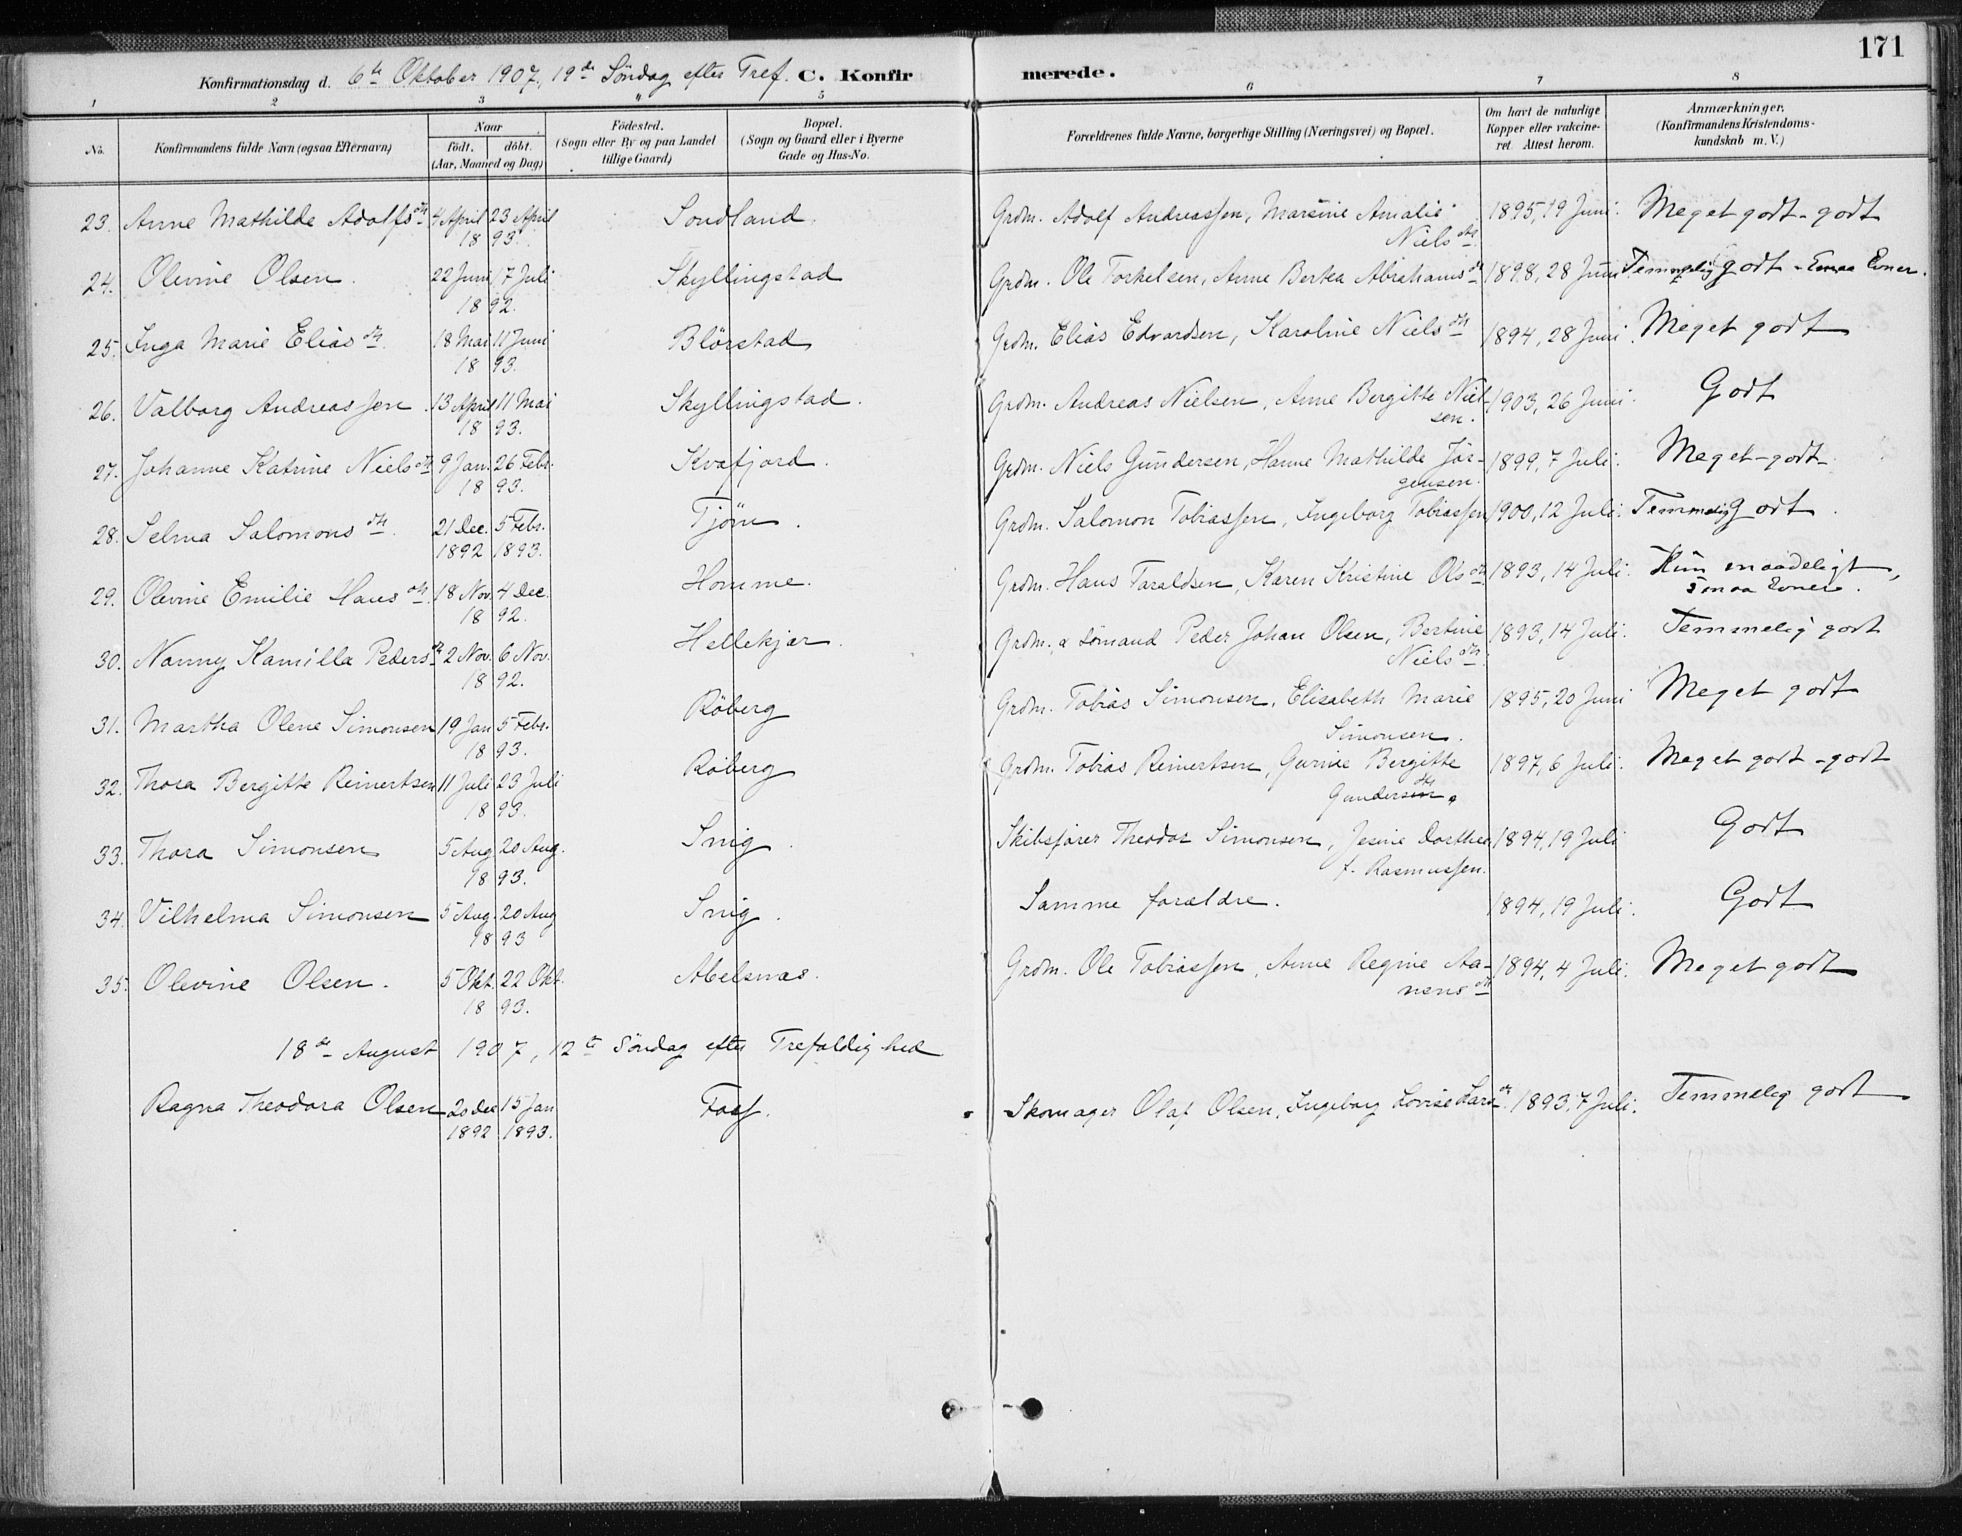 171
Konfirmationsdag d. 6te Oktober 1907, 19de Söndag efter Tref. C. Konfirmerede.
1 2 3 4 5 6 7 8
No. Konfirmandens fulde Navn (ogsaa Efternavn) Naar födt. döbt. (Aar, Maaned og Dag) Födested. (Sogn eller By og paa Landet tillige Gaard) Bopæl. (Sogn og Gaard eller i Byerne Gade og Hus-No. Forældrenes fulde Navne, borgerlige Stilling (Næringsvei) og Bopæl. Om havt de naturlige Kopper eller vakcineret. Attest herom. Anmærkninger. (Konfirmandens Kristendomskundskab m. V.)
23. Anne Mathilde Adolfsdtr 4 April 23 April Sondland. Grdm. Adolf Andreassen, Marsine Amalie 1895, 19 Juni. Meget godt - godt
18 93. Nielsdtr.
24. Olevine Olsen. 22 Juni 17 Juli Skyllingstad Grdm. Ole Torkelsen, Anne Bertea Abrahamsdtr 1898, 28 Juni Temmelig godt - Smaa Evner.
18 92.
25. Inga Marie Eliasdtr. 18 Mai 11 Juni Blörstad Grdm. Elias Edvardsen, Karoline Nielsdtr 1894, 28 Juni. Meget godt
18 93.
26. Valborg Andreassen 13 April 11 Mai Skyllingstad. Grdm. Andreas Nielsen, Anne Bergitte Niel- 1903, 26 Juni. Godt
18 93. sen.
27. Johanne Katrine Nielsdtr 9 Jan. 26 Febr. Kvafjord. Grdm. Niels Gundersen, Hanne Mathilde Jör- 1899, 7 Juli. Meget-godt-
18 93. gensen.
28. Selma Salomonsdtr. 21 Dec. 5 Febr. Tjöm. Grdm. Salomon Tobiassen, Ingeborg Tobiassen 1900, 12 Juli. Temmelig godt.
1892 1893.
29. Olevine Emilie Hansdtr. 18 Nov 4 Dec. Homme. Grdm. Hans Taraldsen, Karen Kristine Olsdtr 1893, 14 Juli. Kun maadeligt,
18 92. Smaa Evner.
30. Nanny Kamilla Pedersdtr 2 Nov. 6 Nov. Hellekjær. Grdm. & Sömand Peder Johan Olsen, Bertine 1893, 14 Juli. Temmelig godt
18 92. Nielsdtr.
31. Martha Olene Simonsen 19 Jan 5 Febr. Röberg Grdm. Tobias Simonsen, Elisabeth Marie 1895, 20 Juni Meget godt
18 93. Simonsen.
32. Thora Bergitte Reinertsen 11 Juli 23 Juli Röberg Grdm. Tobias Reinertsen, Gurine Bergitte 1897, 6 Juli. Meget godt - godt
18 93. Gundersen dtr.
33. Thora Simonsen 5 Aug 20 Aug. Snig. Skibsförer Theodor Simonsen, Jesine Dorthea 1894, 19 Juli Godt
18 93. f. Rasmussen.
34. Vilhelma Simonsen 5 Aug. 20 Aug Snig. Samme forældre. 1894, 19 Juli. Godt
18 93
35. Olevine Olsen. 5 Okt. 22 Okt. Abelsnæs. Grdm. Ole Tobiassen, Anne Regine Aa- 1894, 4 Juli. Meget godt
18 93. nensdtr
18de August 1907, 12te Söndag efter Trefoldighed
Ragna Theodora Olsen 20 Dec 15 Jan Foss. Skomager Olaf Olsen, Ingeborg Lovise Larsdtr. 1893, 7 Juli. Temmelig godt
1892 1893.